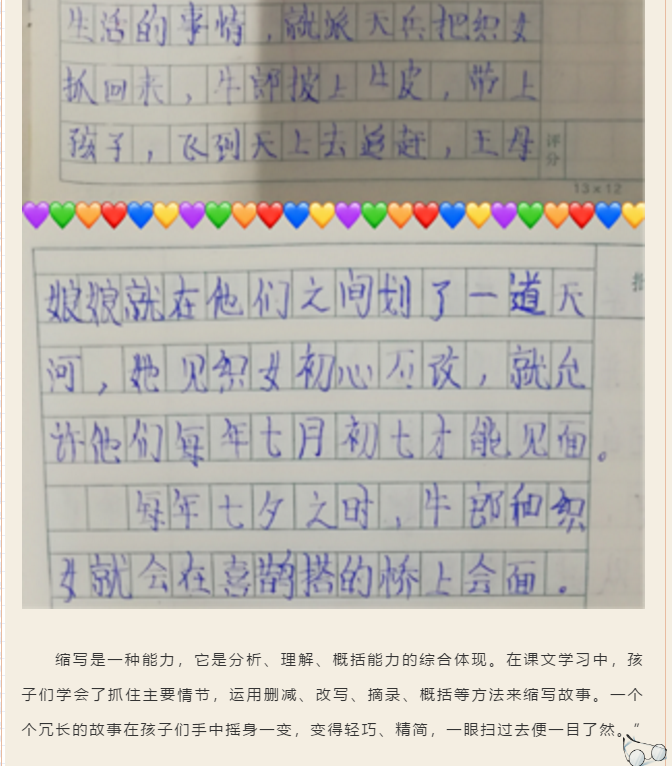 生活的事情，就派天兵把织女
抓回来，牛郎披上牛皮，带上
孩子，飞到天上去追赶，王母
评分
13×12
娘娘就在他们之间划了一道天
河，她见织女初心不改，就允
许他们每年七月初七才能见面。
每年七夕之时，牛郎和织
女就会在喜鹊搭的桥上会面。
缩写是一种能力，它是分析、理解、概括能力的综合体现。在课文学习中，孩
子们学会了抓住主要情节，运用删减、改写、摘录、概括等方法来缩写故事。一个
个冗长的故事在孩子们手中摇身一变，变得轻巧、精简，一眼扫过去便一目了然。”